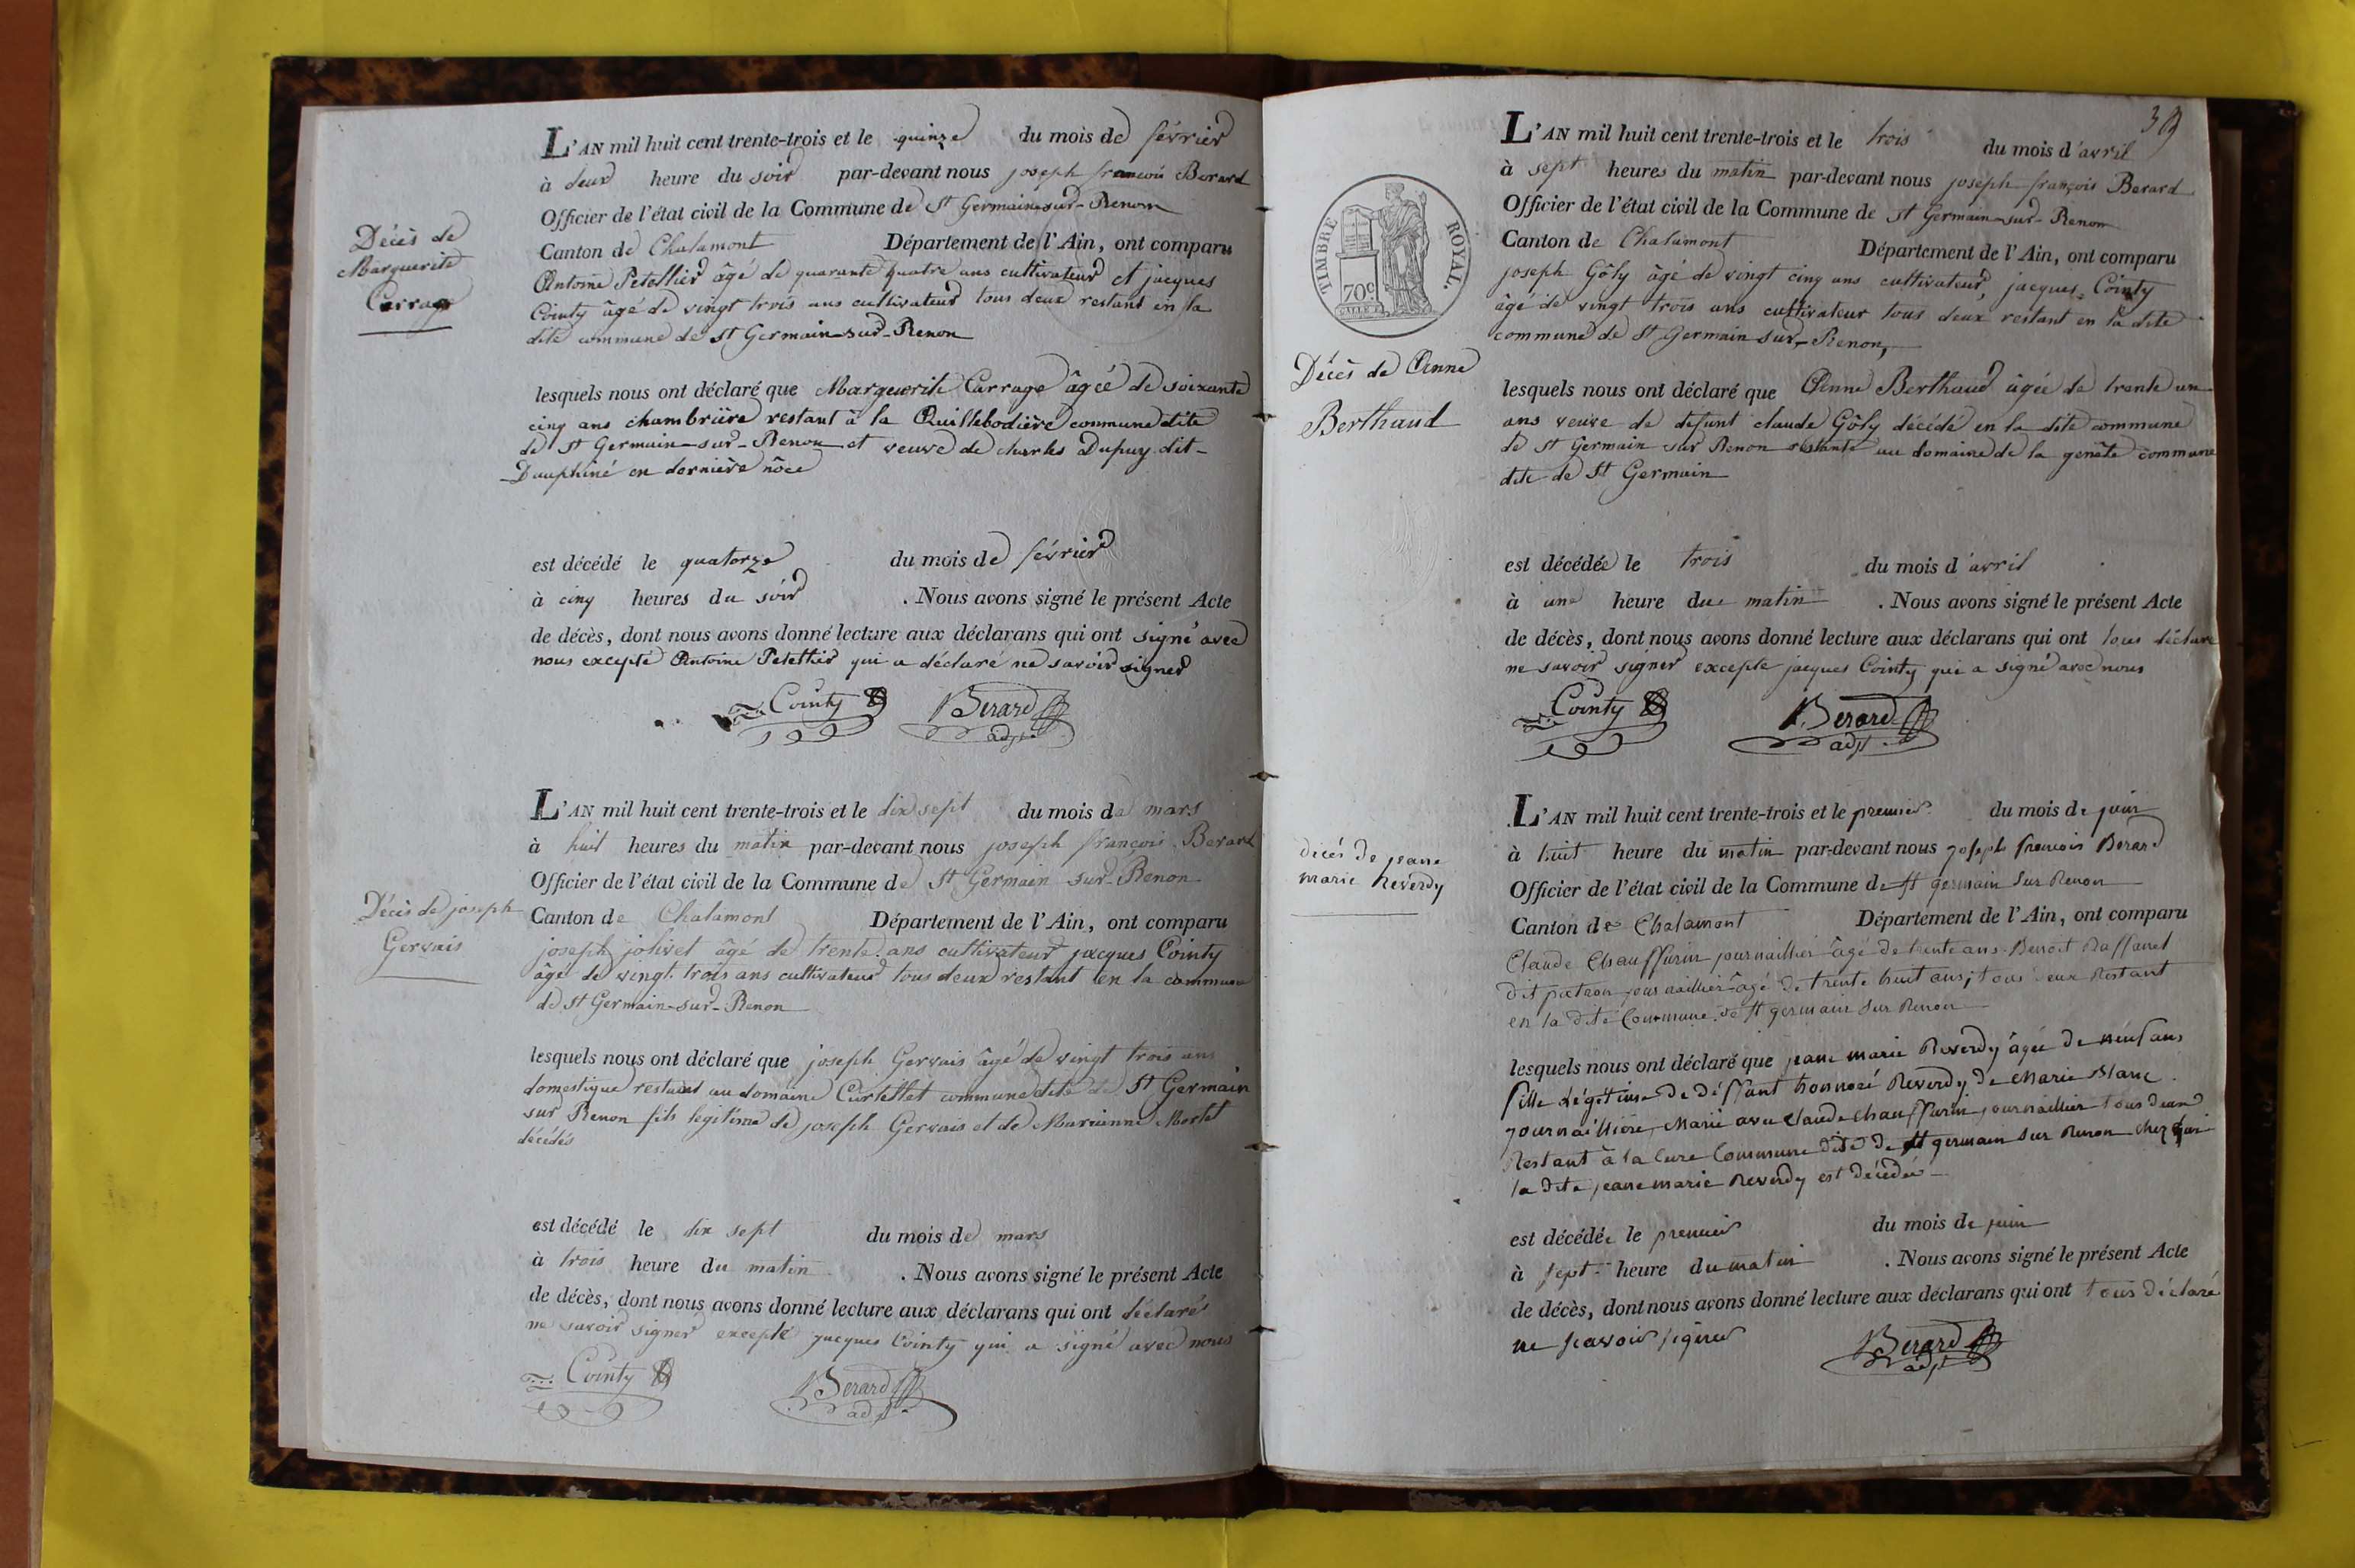 Décès de
Marguerite
Carrage
L'AN mil huit cent trente-trois et le quinze du mois de février
à deux heure du soir par-devant nous joseph francois Berard
Officier de l'état civil de la Commune de St Germain-sur-Renom
Canton de Chalamont Département de l'Ain, ont comparu
Antoine Petellier âgé de quarante quatre ans cultivateur et jacques
Cointy âgé de vingt trois ans cultivateur tous deux restant en la
dite commune de St Germain-sur-Renon
lesquels nous ont déclaré que Marguerite Carrage âgée de soixante
cinq ans chambrière restant à la Quillebodière commune dite
de St Germain-sur-Renon et veuve de charles Dupuy dit-
Dauphiné en dernière nôce
est décédé le quatorze du mois de février
à cinq heures du soir . Nous avons signé le présent Acte
de décès, dont nous avons donné lecture aux déclarans qui ont signé avec
nous excepté Antoine Petellier qui a déclaré ne savoir signer
Cointy Berard
adjt
Décès de joseph
Gervais
L'AN mil huit cent trente-trois et le dix sept du mois de mars
à huit heures du matin par-devant nous joseph françois Berard
Officier de l'état civil de la Commune de St Germain sur-Renon
Canton de Chalamont Département de l'Ain, ont comparu
joseph jolivet âgé de trente ans cultivateur jacques Cointy
âgé de vingt trois ans cultivateur tous deux restant en la commune
de St Germain-sur-Renon
lesquels nous ont déclaré que joseph Gervais âgé de vingt trois ans
domestique restant au domaine Curtellet commune dite de St Germain
sur Renon fils legitime de joseph Gervais et de Marianne Morlet
décédés
est décédé le dix sept du mois de mars
à trois heure du matin . Nous avons signé le présent Acte
de décès, dont nous avons donné lecture aux déclarans qui ont déclarés
ne savoir signer excepté jacques Cointy qui a signé avec nous
Cointy Berard
adjt
TIMBRE ROYAL.
70c
Décès de Anne
Berthaud
L'AN mil huit cent trente-trois et le trois du mois d'avril
à sept heures du matin par-devant nous joseph françois Berard
Officier de l'état civil de la Commune de St Germain-sur-Renon
Canton de Chalamont Département de l'Ain, ont comparu
joseph Gôly âgé de vingt cinq ans cultivateur, jacques Cointy
âgé de vingt trois ans cultivateur tous deux restant en la dite
commune de St Germain sur-Renon,
lesquels nous ont déclaré que Anne Berthaud âgée de trente un
ans veuve de defunt claude Gôly décédé en la dite commune
de St Germain sur Renon restante au domaine de la genête commune
dite de St Germain
est décédée le trois du mois d'avril
à une heure du matin . Nous avons signé le présent Acte
de décès, dont nous avons donné lecture aux déclarans qui ont tous déclaré
ne savoir signer excepte jacques Cointy qui a signé avec nous
Cointy Berard
adjt
décés de jeane
marie Reverdy
L'AN mil huit cent trente-trois et le premier du mois de juin
à huit heure du matin par-devant nous joseph francois Berard
Officier de l'état civil de la Commune de St germain Sur Renon
Canton de Chalamont Département de l'Ain, ont comparu
Claude Chauffurin journaillier âgé de trente ans Benoit Daffanel
dit patron journaillier âgé de trente huit ans, tous deux Restant
en la dite Commune de St germain Sur Renon
lesquels nous ont déclaré que jeane marie Reverdy âgée de neuf ans
fille Légétime de déffunt honnoré Reverdy de Marie Blanc
journaillière, Marié avec Claude chauffurin journaillier tous deux
Restant à la Cure Commune dite de St germain Sur Renon chez qui
la dite jeane marie Reverdy est décédée
est décédée le premier du mois de juin
à sept heure du matin . Nous avons signé le présent Acte
de décès, dont nous avons donné lecture aux déclarans qui ont tous déclaré
ne scavoir signer Berard
adjt